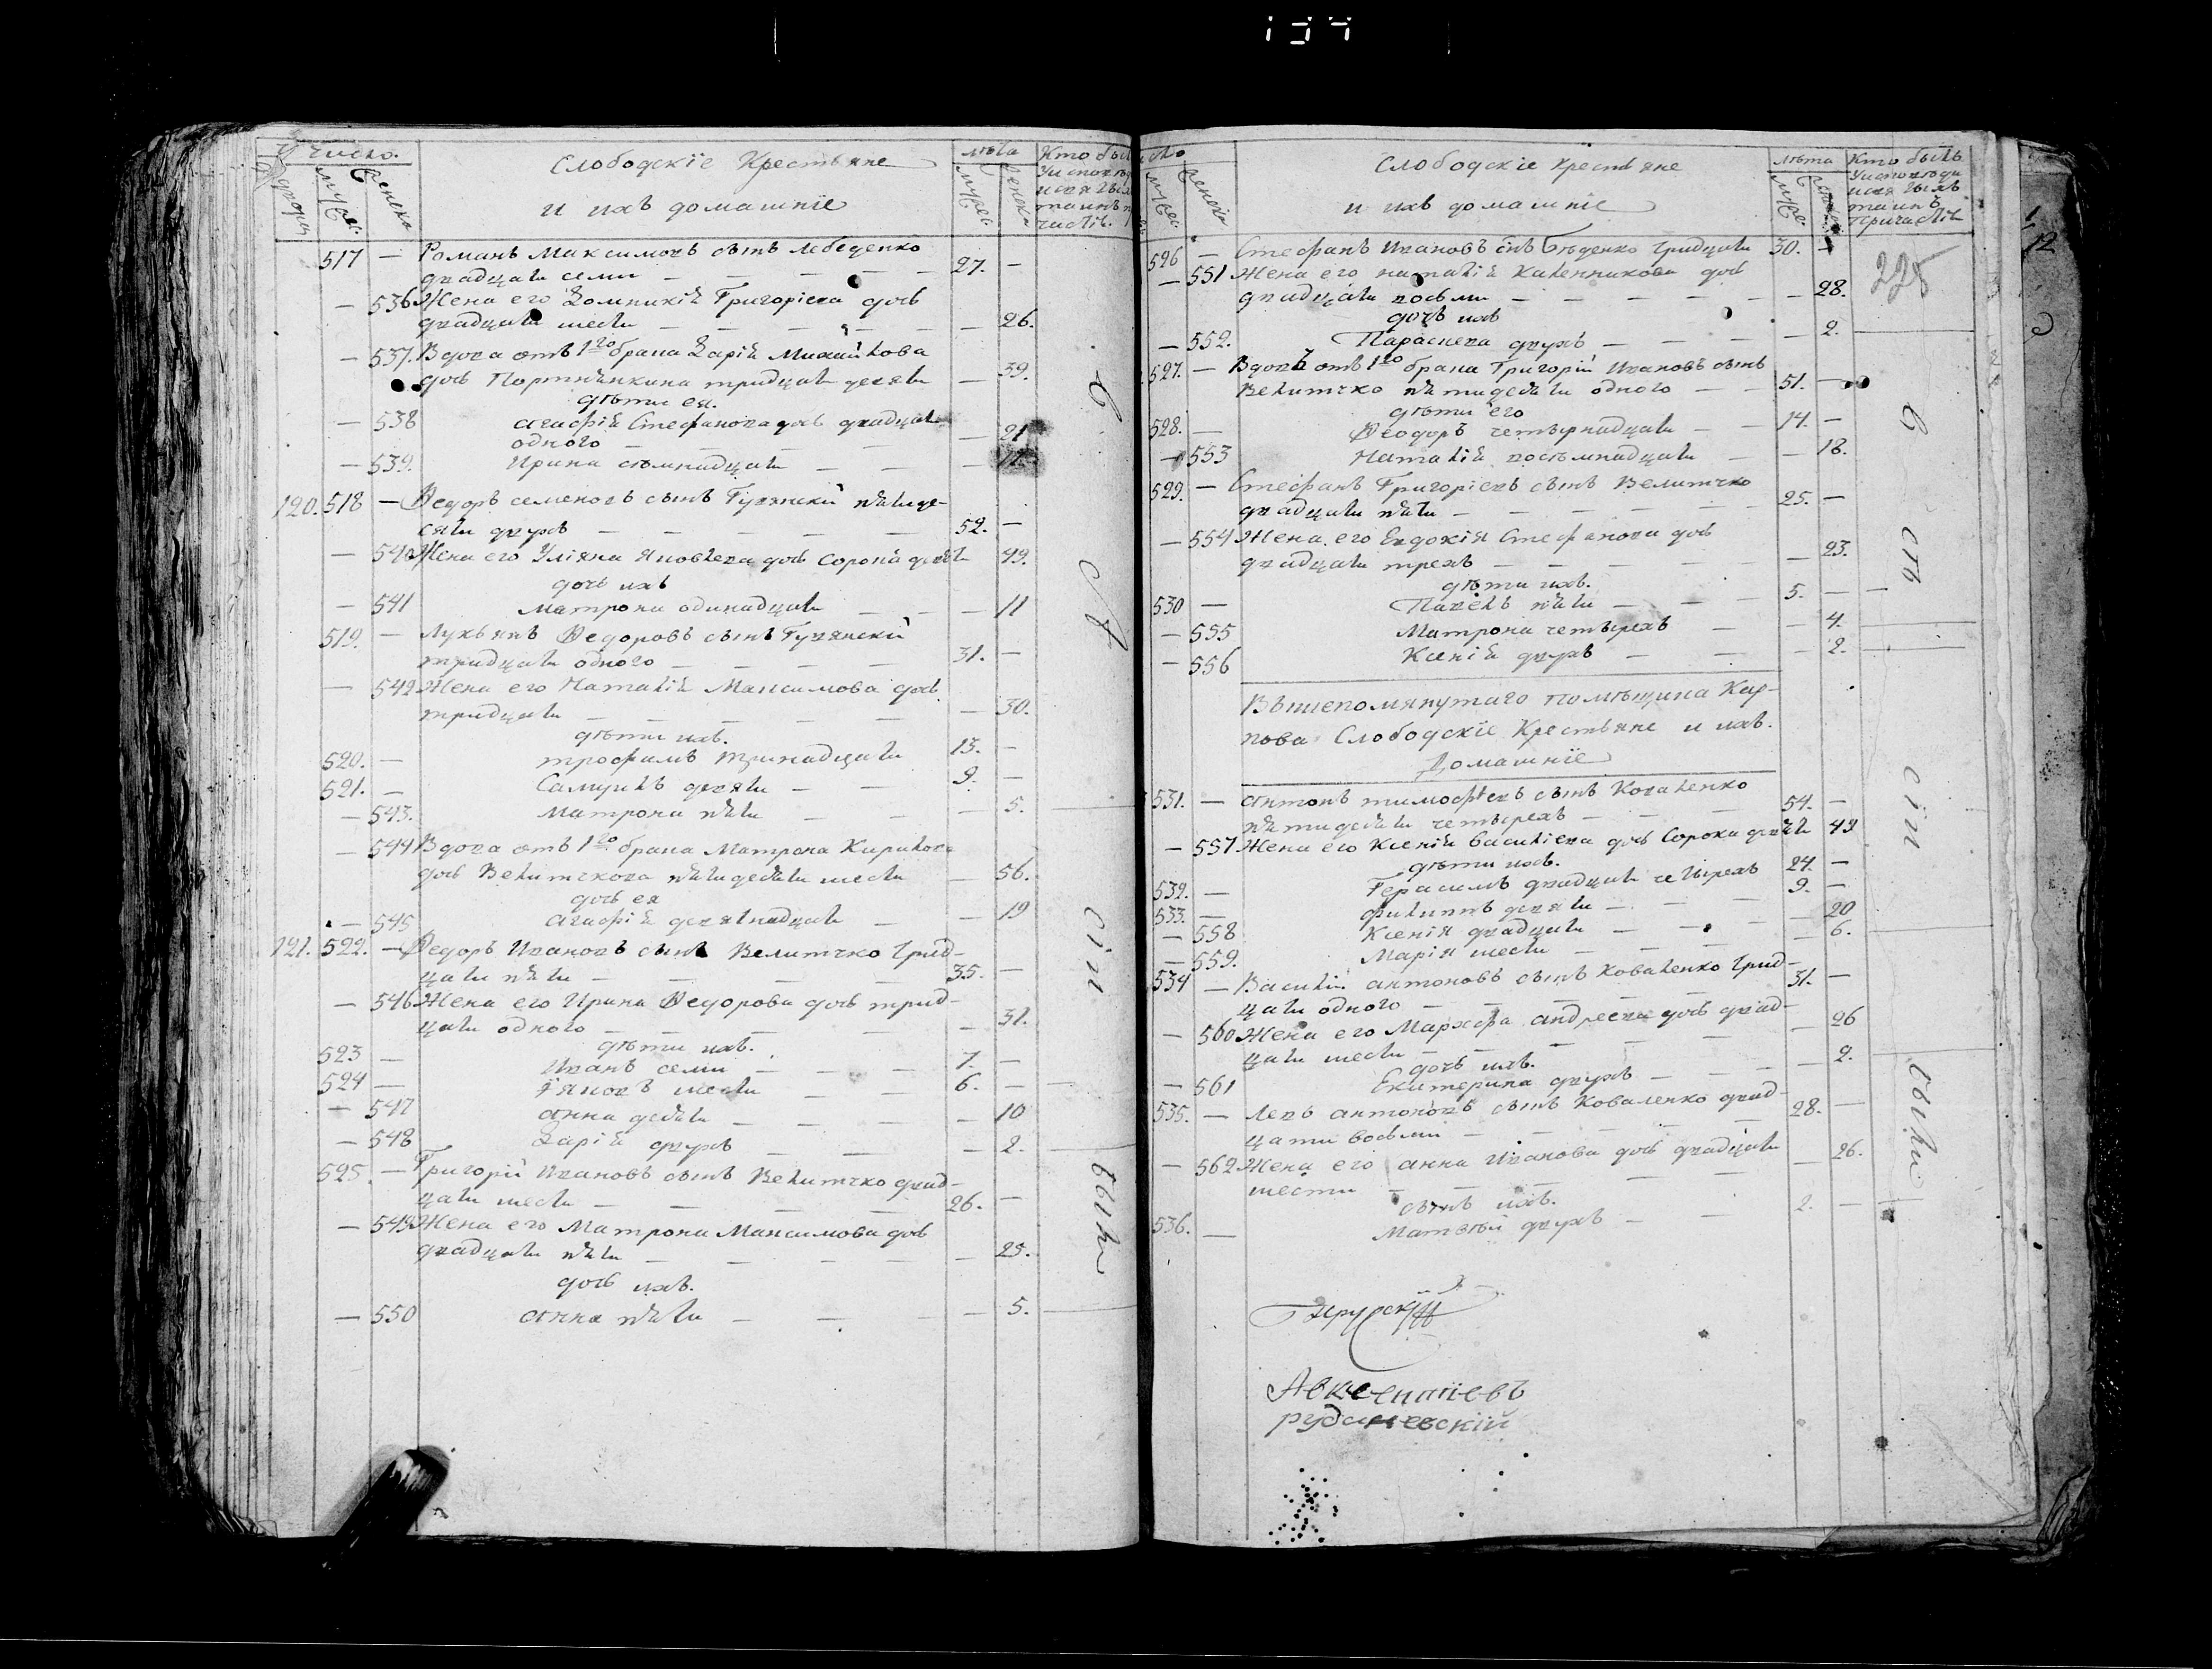 Число.
двора
мужес.
женска
Слободскіе Крестьяне
и ихъ домашніе
лѣта
мужес.
женска
Кто былъ
517 — Романъ Максимовъ сынъ Лебеденко
двадцати семи — 27. —
— 536 Жена его Домникія Григоріева дочь
двадцати шести — 26.
— 537. Вдова отъ 1го брака Дарія Михайлова
дочь тридцати девяти — 39.
дѣти ея.
— 538 Агафія Стефанова дочь двадцати
одного — 21
— 539. Ирина семнадцати — 17.
120. 518 — Ѳедоръ Семеновъ сынъ Гувянскій пятиде-
сяти двухъ — 52. —
— 540 Жена его Уліяна Яковлева дочь сорока девяти 49.
дочь ихъ
— 541 Матрона одинадцати — 11
519. — Лукьянъ Ѳедоровъ сынъ Гувянскій
тридцати одного — 31. —
— 542 Жена его Наталія Максимова дочь
тридцати — 30.
дѣти ихъ.
520. — Трофимъ тринадцати 13. —
521. — Самуилъ девяти — 9. —
— 543. Матрона пяти — 5.
— 544 Вдова отъ 1го брака Матрона Кирилова
дочь Величкова пятидесяти шести — 56.
дочь ея
— 545 Агафія девятнадцати — 19
121. 522. — Ѳедоръ Ивановъ сынъ Величко трид-
цати пяти — 35. —
— 546 Жена его Ирина Ѳедорова дочь трид-
цати одного — 31.
дѣти ихъ.
523 — Иванъ семи — 7. —
524 — Іяковъ шести — 6. —
— 547 Анна десяти — 10
— 548 Дарія двухъ — 2.
525. — Григорій Ивановъ сынъ Величко двад-
цати шести — 26. —
— 549 Жена его Матрона Максимова дочь
двадцати пяти — 25.
дочь ихъ.
— 550 Анна пяти — 5.
были
число
мужес.
женска
Слободскіе Крестьяне
и ихъ домашніе
лѣта
мужес.
Кто былъ
Уисповѣди
и святыхъ
таинъ
Причастія
225
526 — Стефанъ Ивановъ сынъ Бѣденко тридцати 30. —
— 551 Жена его Наталія Каленникова дочь
двадцати восьми — 28.
дочь ихъ
— 552. Параскева двухъ — 2.
527. — Вдовъ отъ 1го брака Григорій Ивановъ сынъ
Величко пятидесяти одного — 51. —
дѣти его
528. — Ѳеодоръ четырнадцати — 14. —
— 553 Наталія восемнадцати — 18.
529. — Стефанъ Григоріевъ сынъ Величко
двадцати пяти — 25. —
— 554 Жена его Евдокія Стефанова дочь
двадцати трехъ — 23.
дѣти ихъ.
530 — Павелъ пяти — 5. —
— 555 Матрона четырехъ — 4.
— 556 Ксенія двухъ — 2.
Вышепомянутаго помѣщика Кар-
пова Слободскіе Крестьяне и ихъ.
Домашніе
531. — Антонъ Тимофѣевъ сынъ Коваленко
пятидесяти четырехъ — 54. —
— 557 Жена его Ксенія Василіева дочь сорока девяти 49
дѣти ихъ.
532. — Герасимъ двадцати четырехъ 24. —
533. — Филиппъ девяти — 9. —
— 558 Ксенія двадцати — 20
— 559. Марія шести — 6.
534 — Василій Антоновъ сынъ Коваленко трид-
цати одного — 31. —
— 560 Жена его Марфа Андреева дочь двад-
цати шести — 26
дочь ихъ.
— 561 Екатерина двухъ — 2.
535. — Левъ Антоновъ сынъ Коваленко двад-
цати восьми — 28. —
— 562 Жена его Анна Иванова дочь двадцати
шести — 26.
сынъ ихъ.
536. — Матвѣй двухъ — 2. —
были
Авксентіевъ